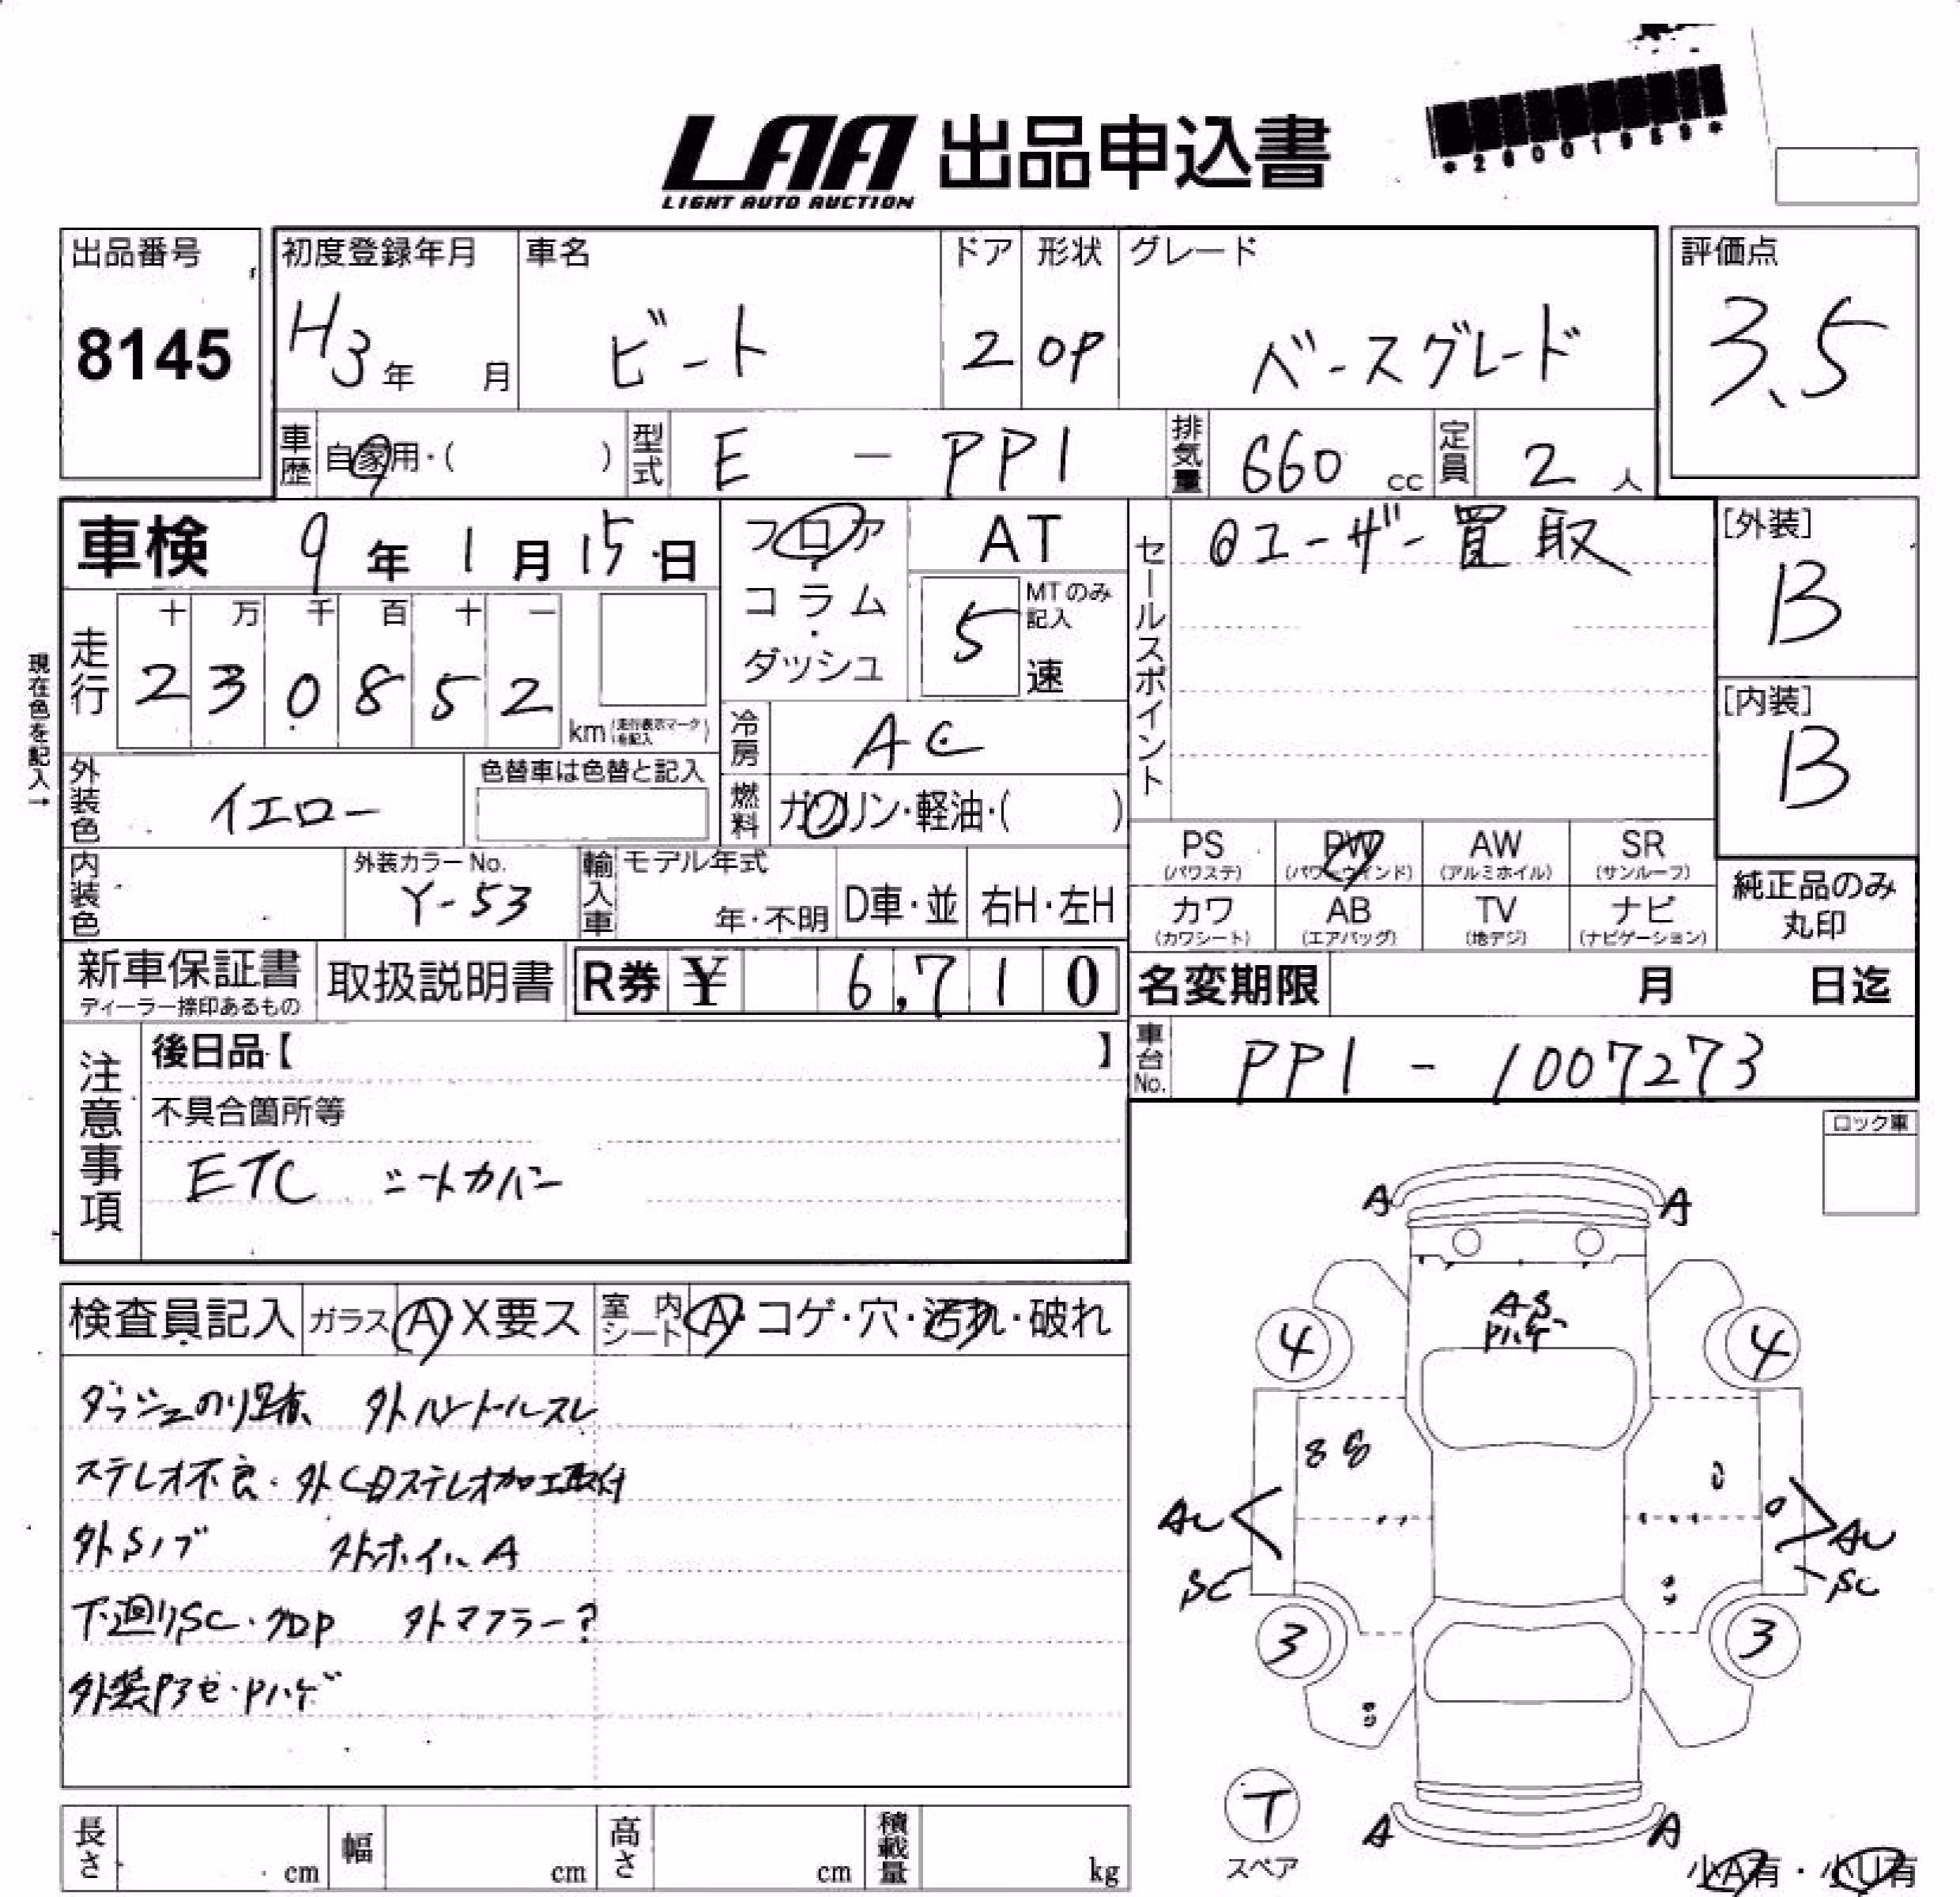 LAA 出品申込書
LIGHT AUTO AUCTION
*28001959*
出品番号
8145
初度登録年月
H3年 月
車名
ビート
ドア
2
形状
OP
グレード
ベースグレード
評価点
3.5
車歴
自家用・( )
型式
E - PP1
排気量
660 cc
定員
2 人
車検 9年 1月 15日
フロア
コラム
・
ダッシュ
AT
5
MTのみ
記入
速
セールスポイント
◎ユーザー買取
[外装]
B
[内装]
B
現在色を記入→
走行
十 万 千 百 十 一
2 3 0 8 5 2
km (走行表示マークを記入)
冷房
AC
外装色
イエロー
色替車は色替と記入
燃料
ガソリン・軽油・( )
PS
(パワステ)
PW
(パワーウィンド)
AW
(アルミホイル)
SR
(サンルーフ)
カワ
(カワシート)
AB
(エアバッグ)
TV
(地デジ)
ナビ
(ナビゲーション)
純正品のみ
丸印
内装色
外装カラーNo.
Y-53
輸入車
モデル年式
年・不明
D車・並
右H・左H
新車保証書
ディーラー捺印あるもの
取扱説明書
R券 ¥ 6,710
名変期限 月 日迄
車台No.
PP1 - 1007273
注意事項
後日品【 】
不具合箇所等
ETC シートカバー
ロック車
検査員記入
ガラス
A・X要ス
室内シート
A・コゲ・穴・汚れ・破れ
ダッシュのり跡 外ハンドルスレ
ステレオ不良・外CDステレオ加工取付
外Sノブ 外ホイルA
下廻りSC・クロP 外マフラー?
外装Pアセ・Pハゲ
A A
AS
Pハゲ
4 4
AU AU
SC SC
3 3
T
スペア
A A
小A有・小U有
長さ cm
幅 cm
高さ cm
積載量 kg